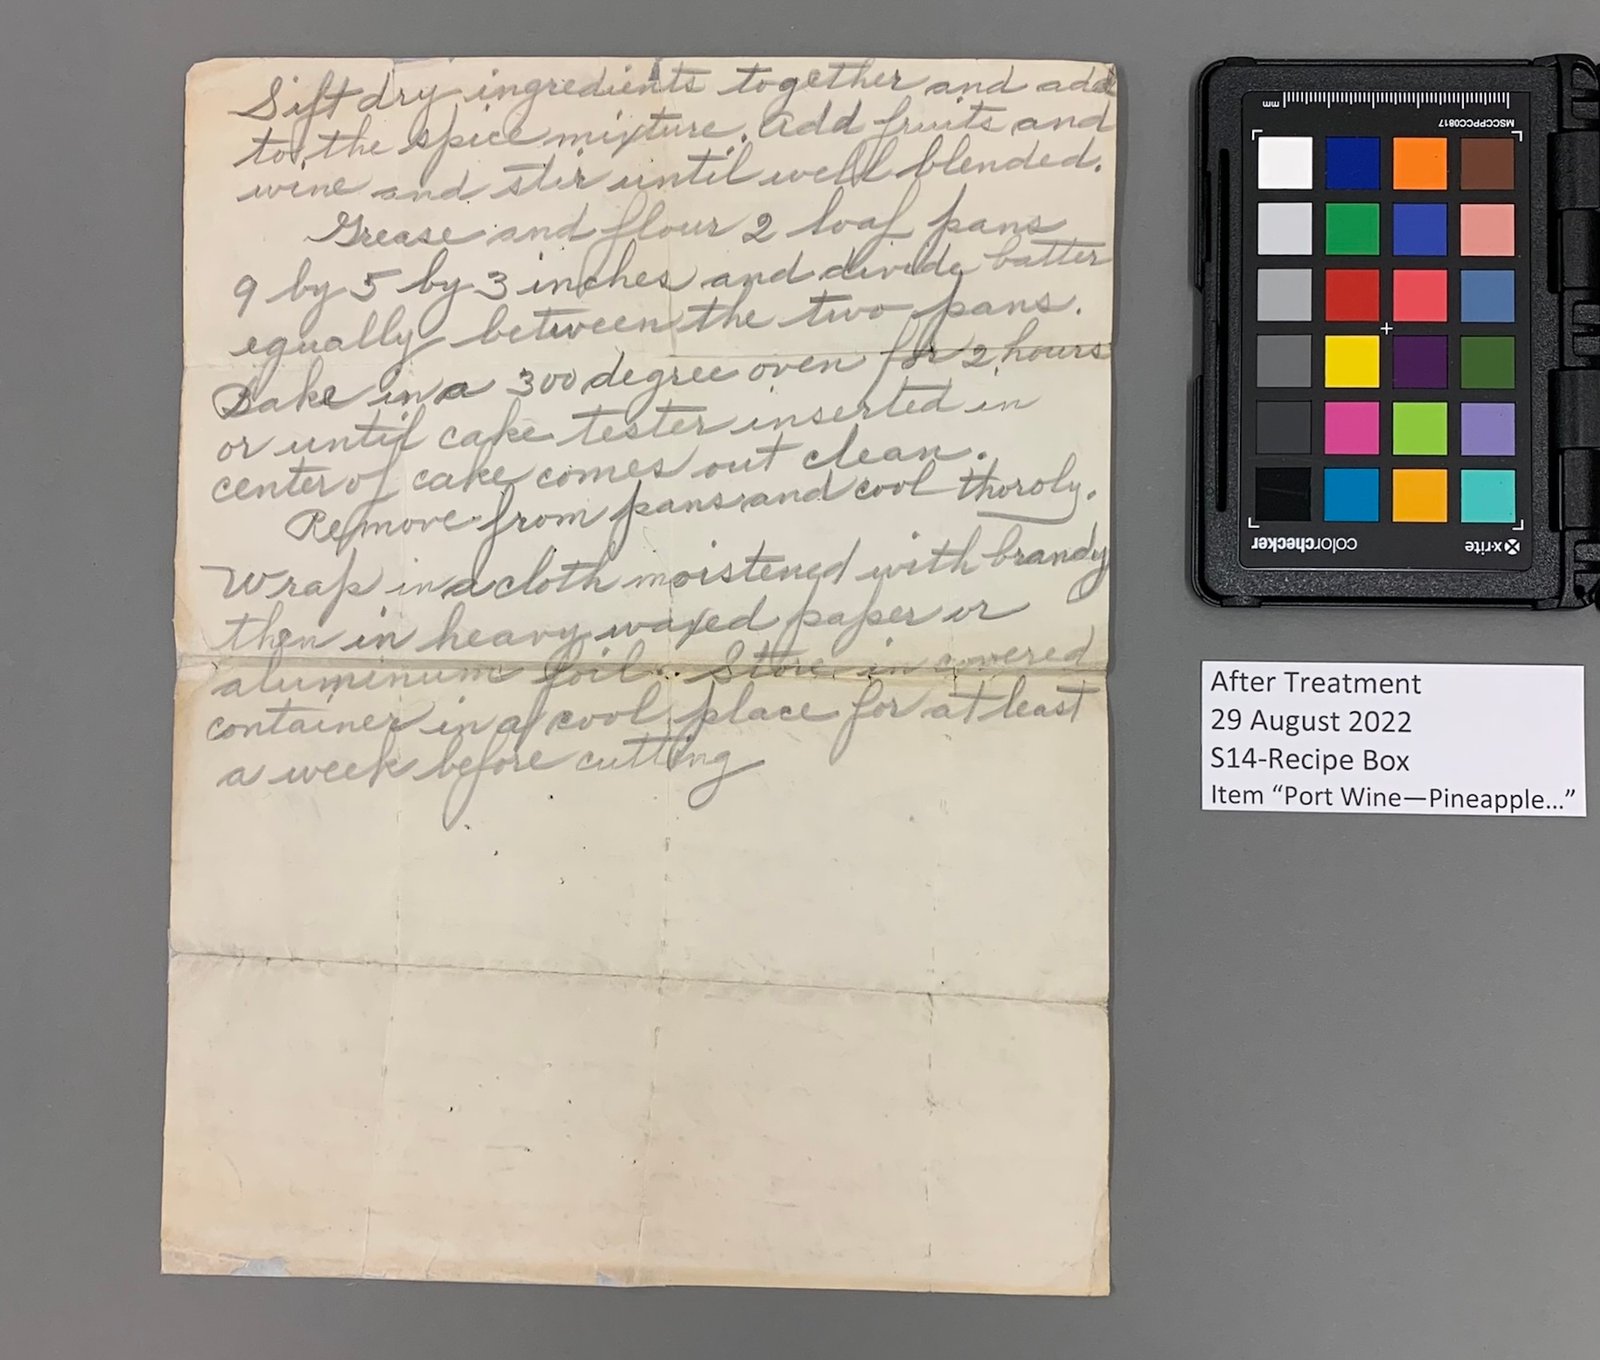 Sift dry ingredients together and add
to the spice mixture. Add fruits and
wine and stir until well blended.
Grease and flour 2 loaf pans
9 by 5 by 3 inches and divide batter
equally between the two pans.
Bake in a 300 degree oven for 2 hours
or until cake tester inserted in
center of cake comes out clean.
Remove from pans and cool thoroly.
Wrap in a cloth moistened with brandy
then in heavy waxed paper or
aluminum foil. Store in covered
container in a cool place for at least
a week before cutting
mm
MSCCPPCC0817
colorchecker
x-rite
After Treatment
29 August 2022
S14-Recipe Box
Item “Port Wine—Pineapple...”